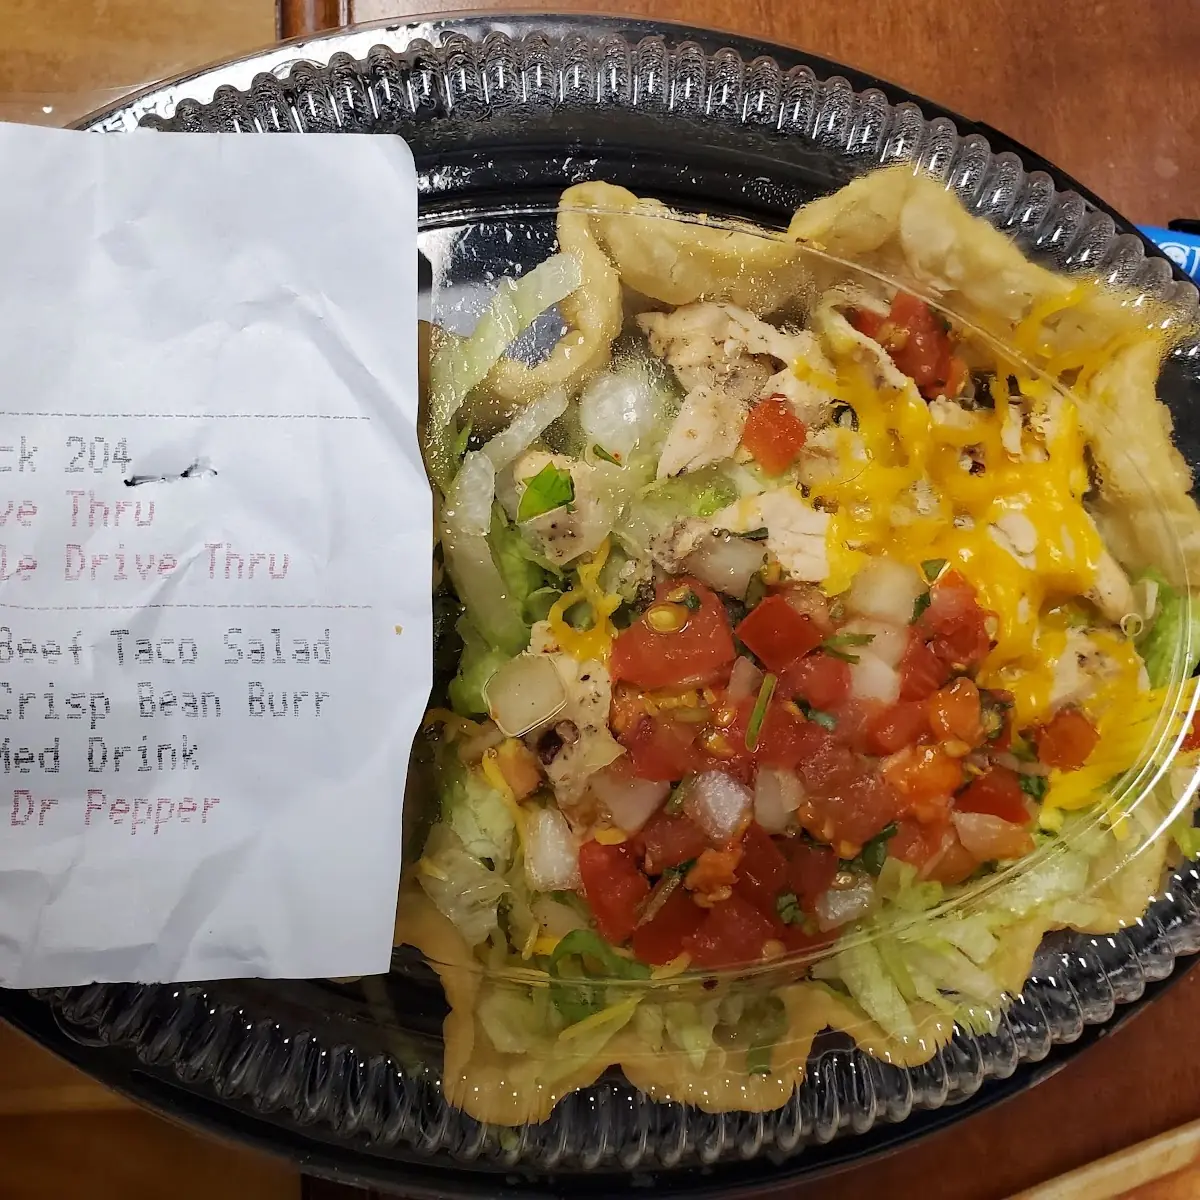 ck 204
ve Thru
le Drive Thru
Beef Taco Salad
Crisp Bean Burr
Med Drink
Dr Pepper